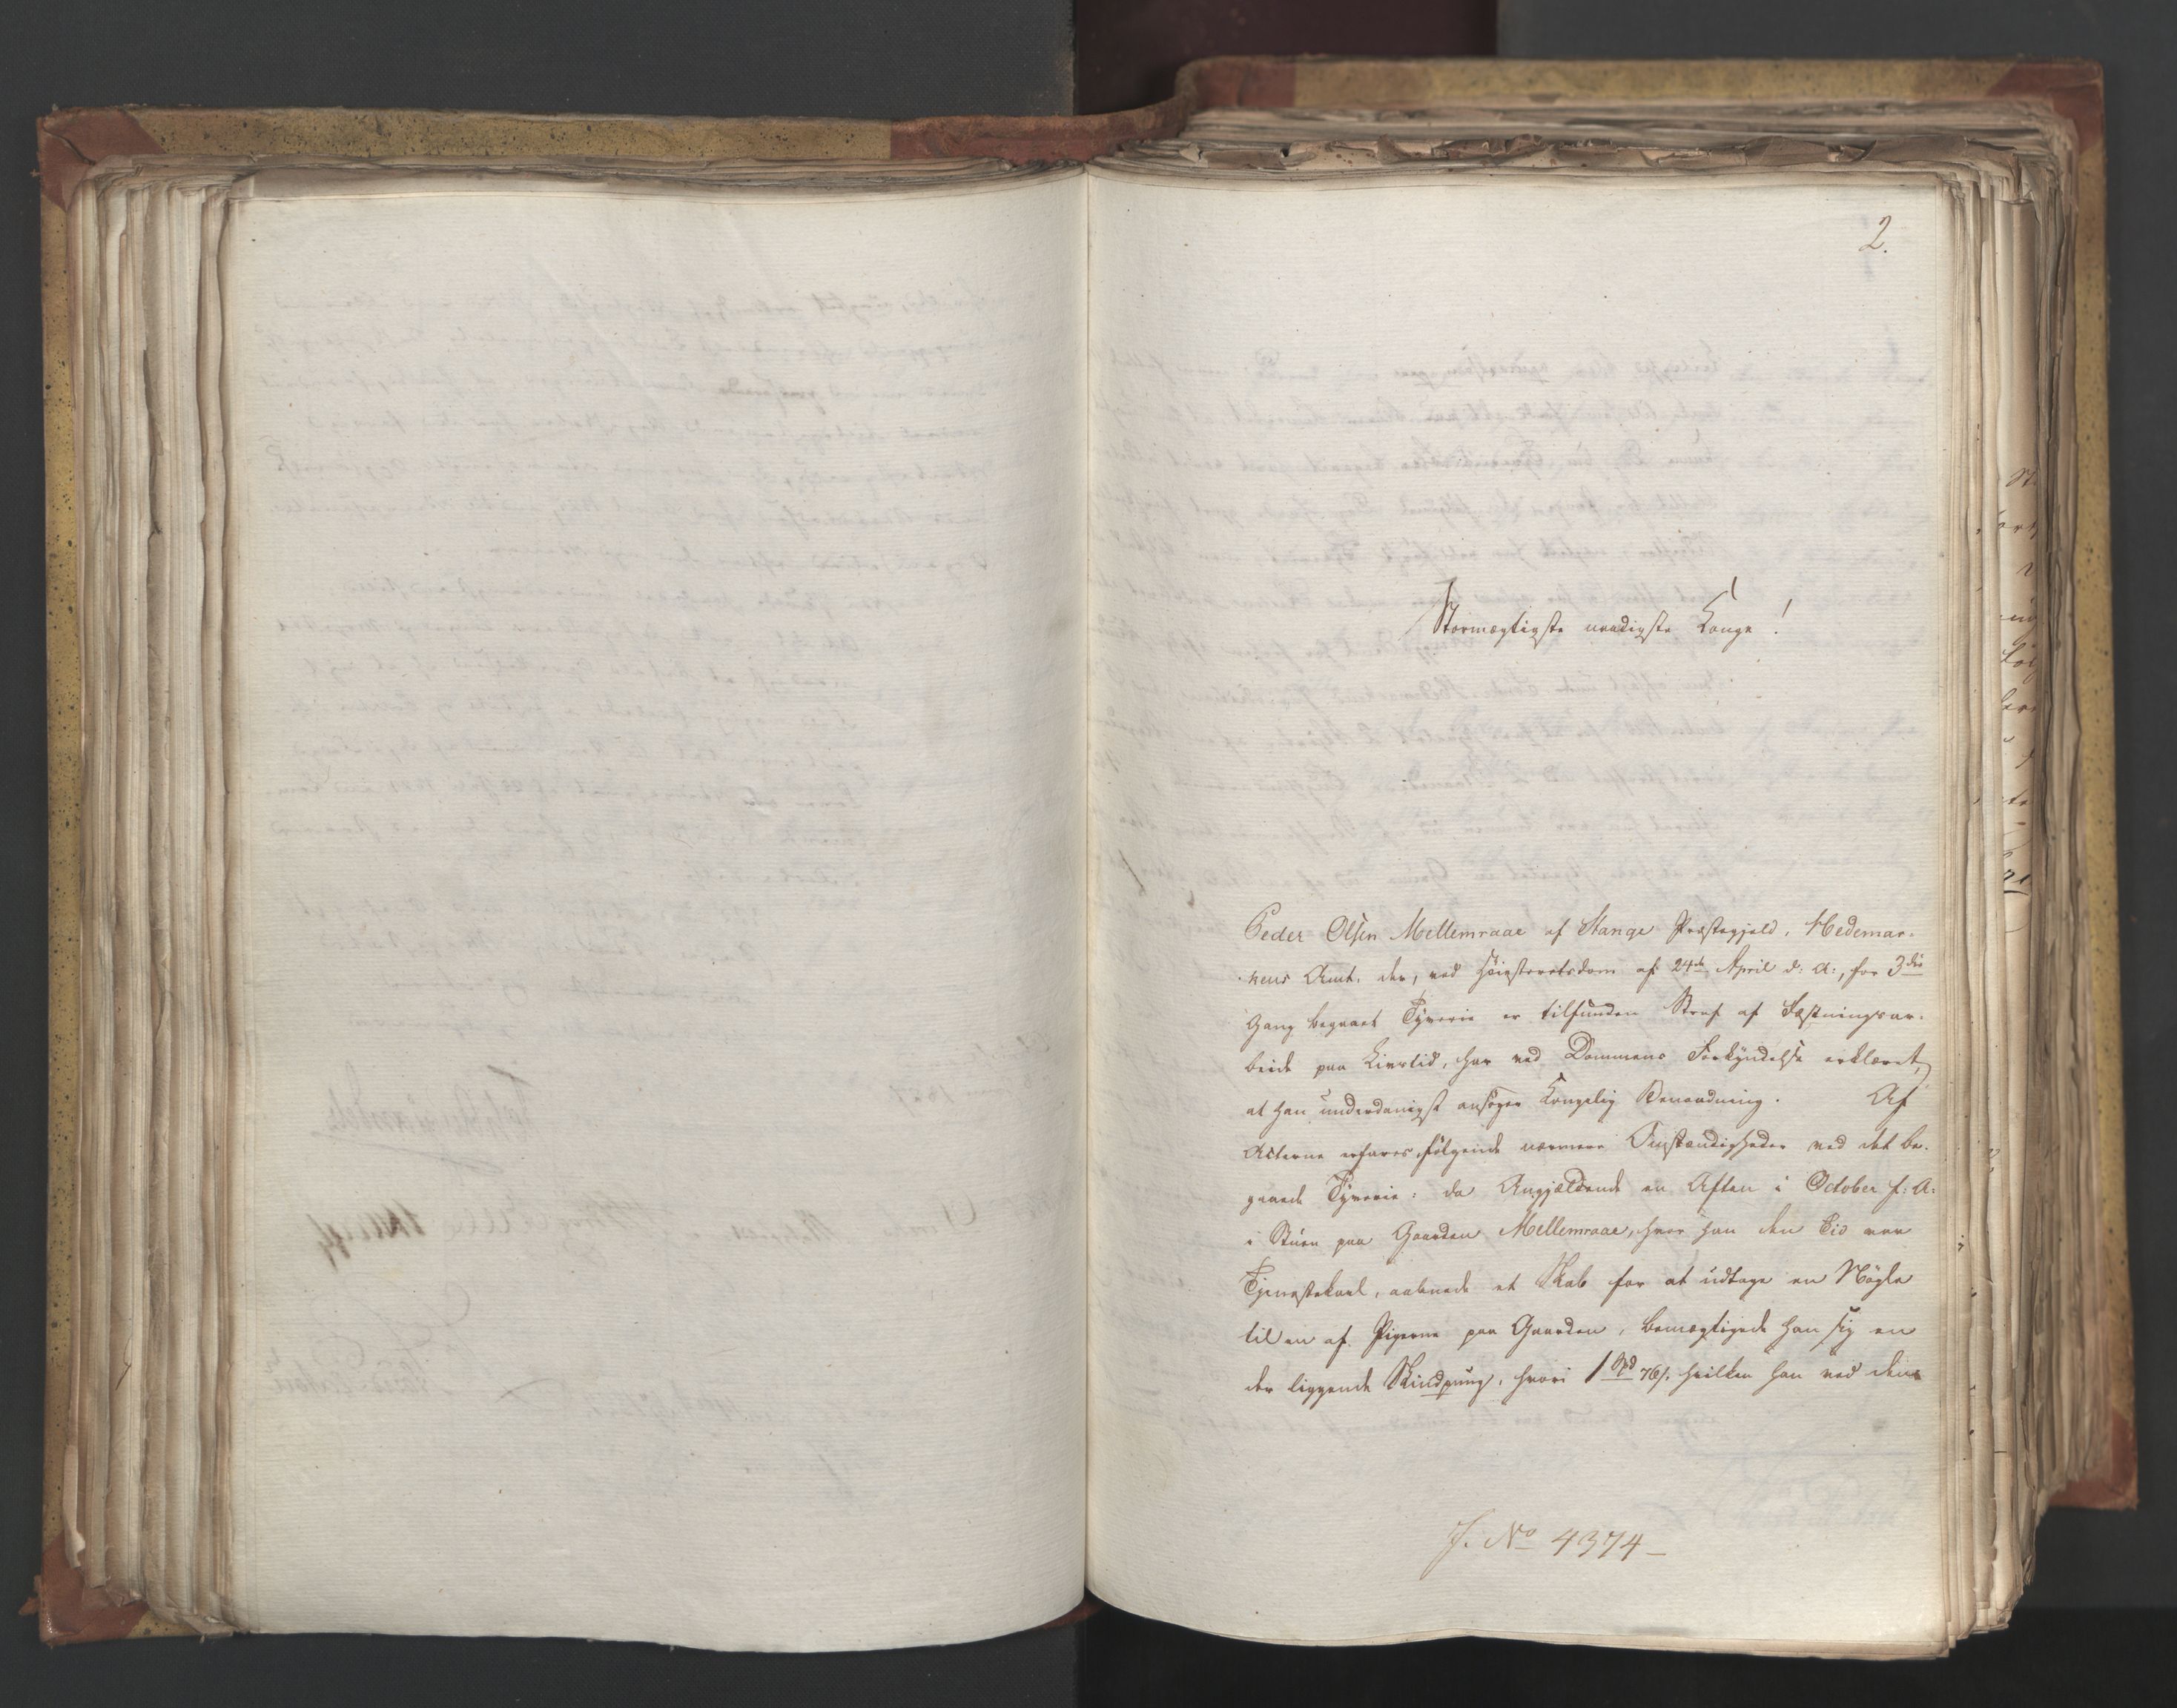 2.
Stormægtigste naadigste Konge!
Peder Olsen Mellemraae af Stange Præstegjeld, Hedemar-
kens Amt, der, ved Høiesteretsdom af 24de April d: A:, for 3die
Gang begaaet Tyverie er tilfunden Straf af Fæstningsar-
beide paa Livstid, har ved Dommens Forkyndelse erklæret,
at han underdanigst ansøger Kongelig Benaadning. Af
Acterne erfares følgende nærmere Omstændigheder ved det be-
gaaede Tyverie: da Angjældende en Aften i October f: A:
i Stuen paa Gaarden Mellemraae, hvor han den Tid var
Tjenestekarl, aabnede et Skab for at udtage en Nøgle
til en af Pigerne paa Gaarden, bemægtigede han sig en
der liggende Skindpung, hvori 1 Spd 76 s. hvilken han ved den
J. No 4374